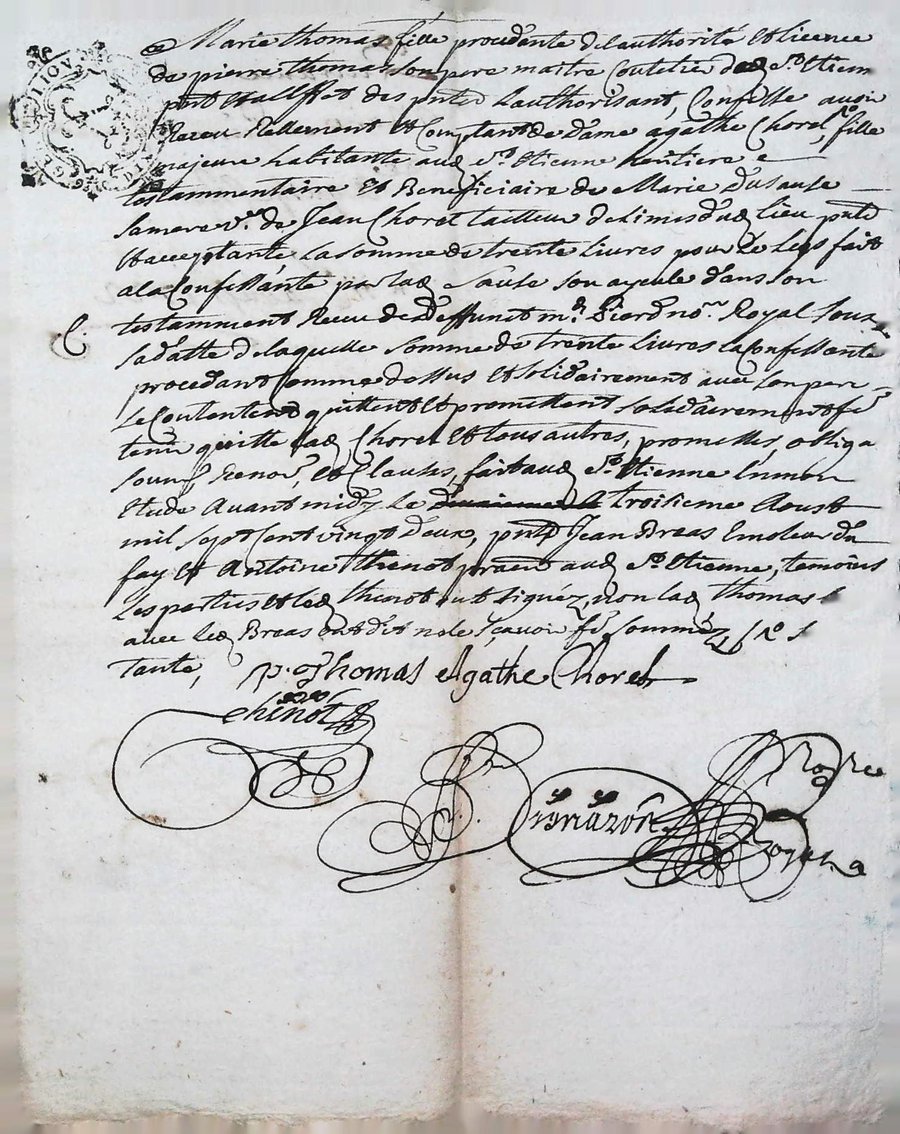 Marie thomas fille procedente de lauthorité et licence
de pierre thomas son pere maitre Coutelier dud St. Etienne
put et all effet des putes Lauthorisant, Confesse avoir
Receu Reellement et Comptant de Dame agathe Chorel, fille
majeure habitante aud St. Etienne heritiere
testammentaire et Beneficiaire de Marie Dusauze
sa mere ve. de Jean Chorel tailleur de Limes dud lieu pnte
et acceptante, La somme de trente Livres pour Le Legs fait
a la Confessante par lad son ayeule dans son
testamment Receu de Deffunct me. no.re Royal sous
sa datte de laquelle somme de trente Livres la Confessante
procedant Comme dessus et solidairement avec son pere
se Contentent quittent et promettent solidairement fe
tenir quitte lad Chorel et tous autres, promesses, obliga
soum Renon, et Clauses, fait aud St. Etienne En mon
Etude Avant midy Le troisieme Aoust
mil sept Cent vingt deux, pnts Jean Breas Emoleur du
fay et Antoine thenot praen aud St. Etienne, temoins
Les parties et led thenot ont signéz, non lad thomas
avec led Breas ont dit ne le sçavoir fe sommés,
tante, p. Thomas Agathe Chorel
thenot